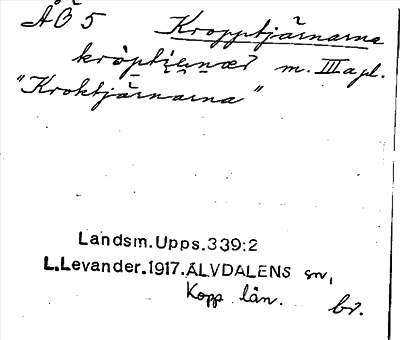 ÅÖ 5 Kropptjärnarna
m. III a pl.
"Kroktjärnarna"
Landsm.Upps.339:2
L.Levander.1917.ÄLVDALENS sn,
Kopp län. br.